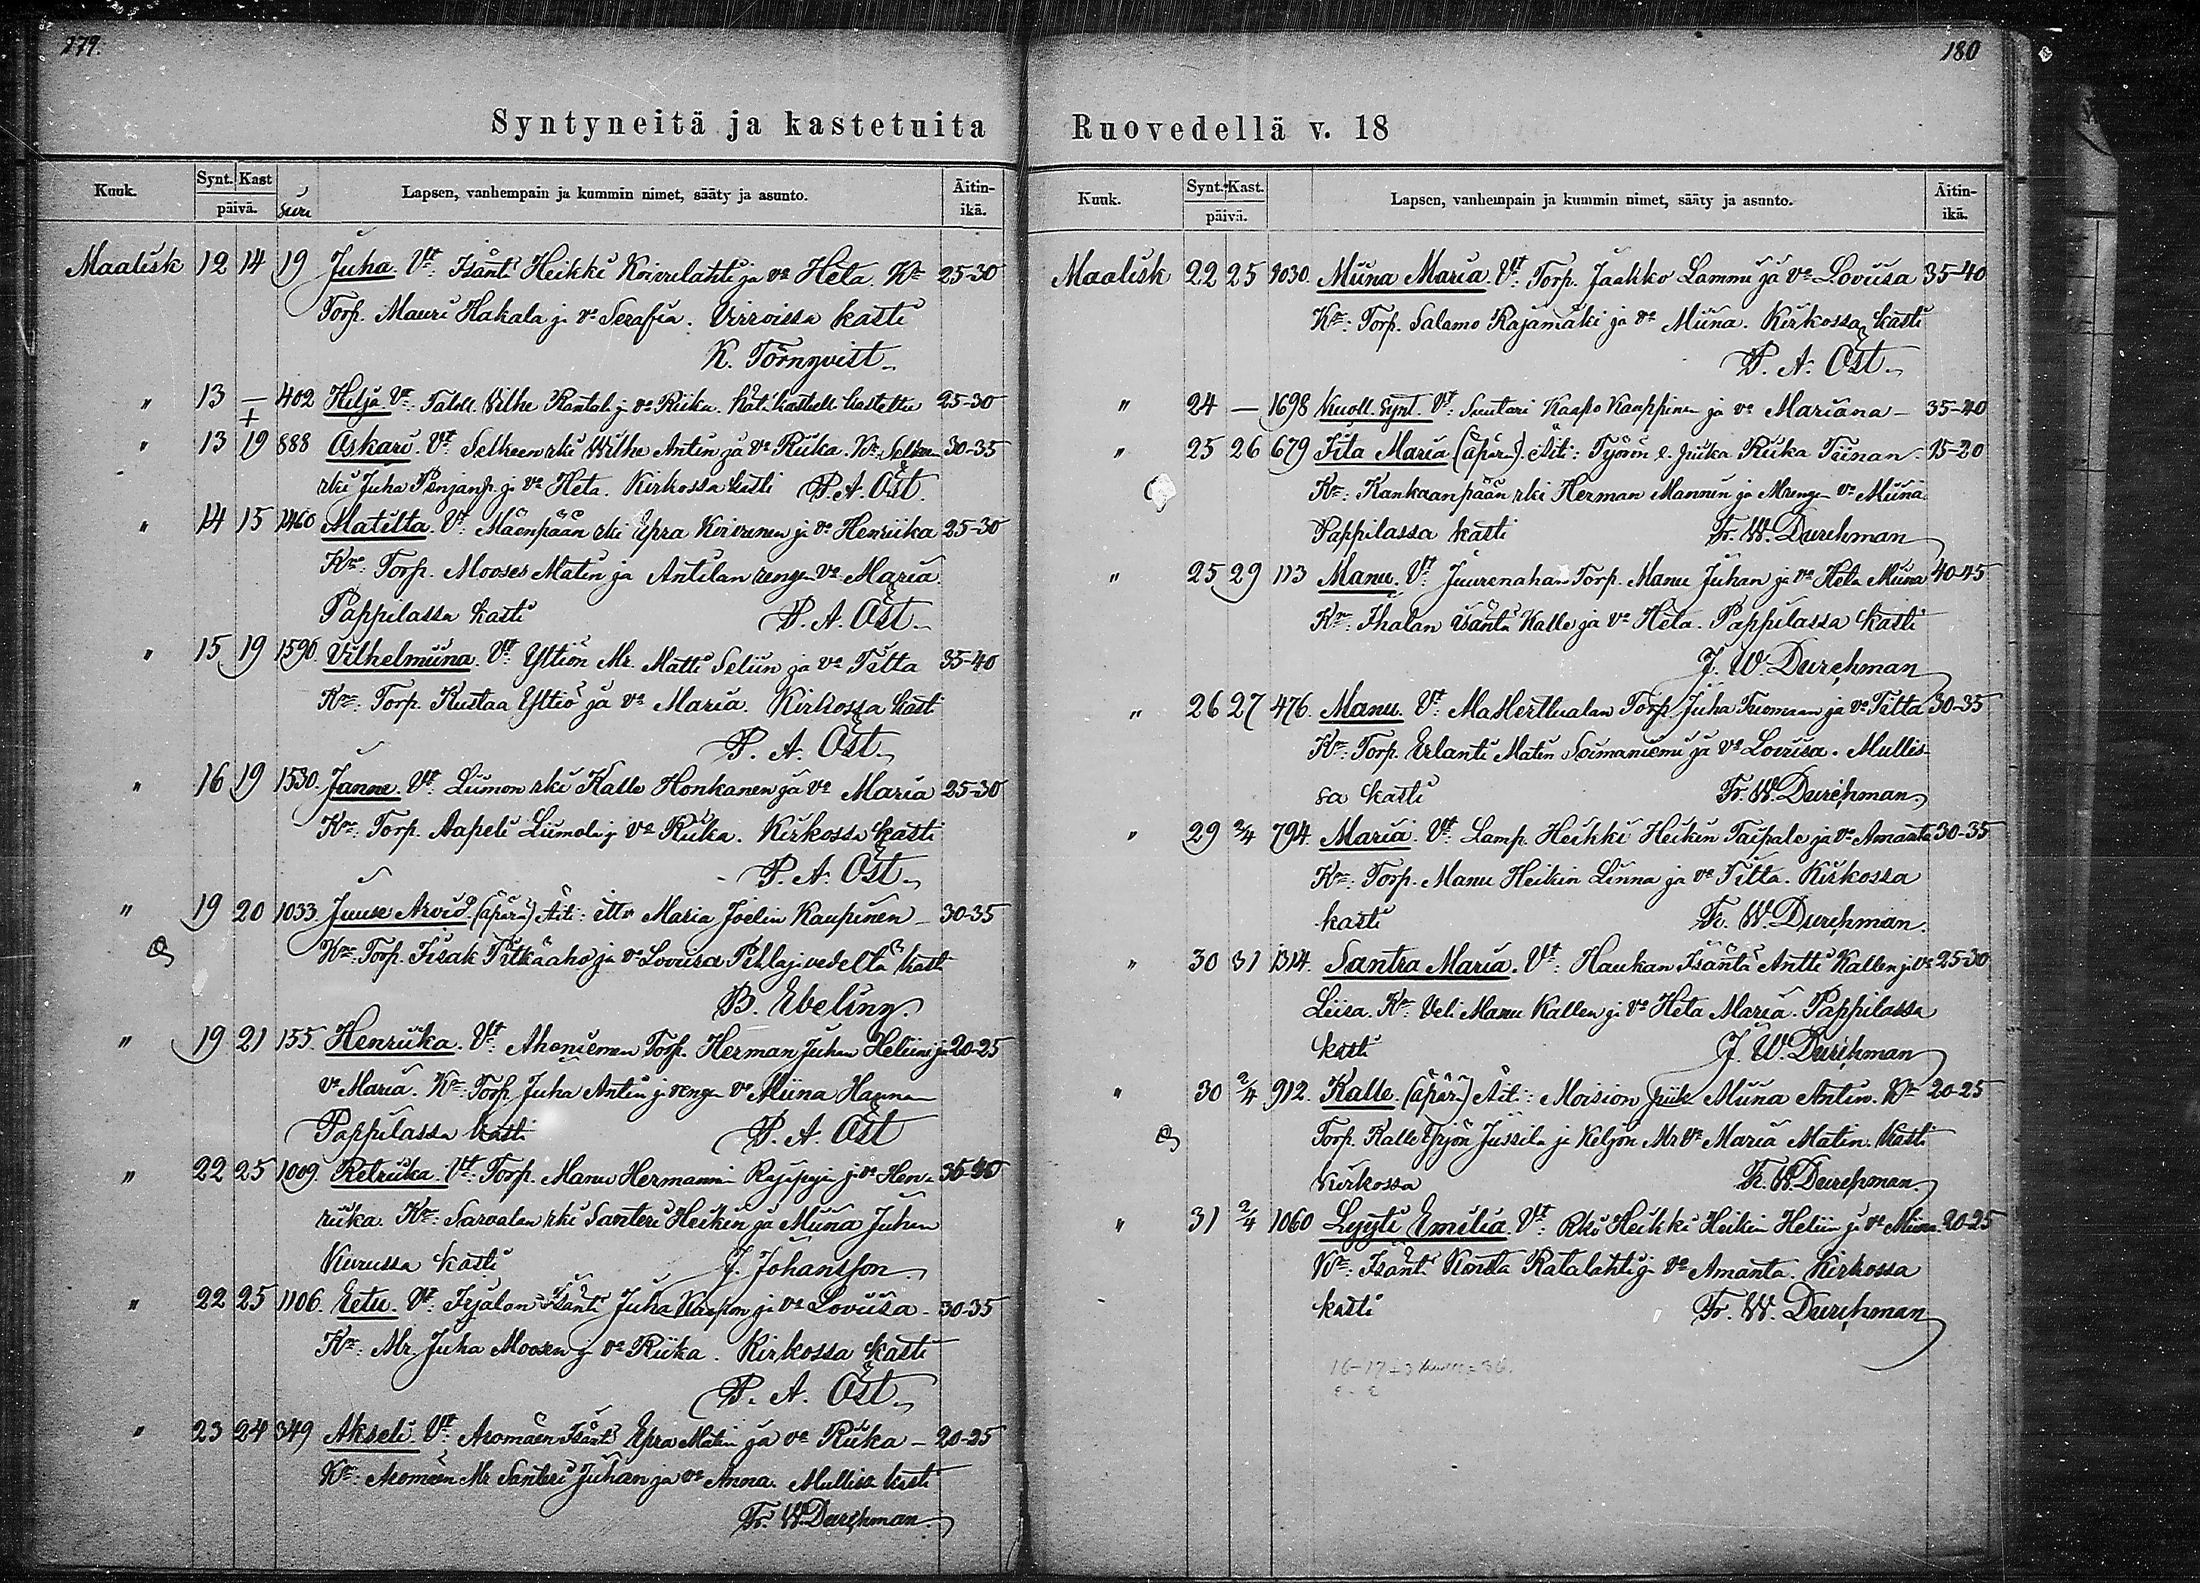 279.
Syntyneitä ja kastetuita
Kuuk.
Synt. Kast
päivä.
Lapsen, vanhempain ja kummin nimet, sääty ja asunto.
Äitin-
ikä.
Maalisk 12 14 19 Juha. Vt: Isäntä Heikki Koivulahti ja va Heta. Kt 25-30
Torp. Mauri Hakala j. va Serafia. Virroissa kasti
K. Törnqvist.
" 13 — 402 Hilja. Vt: Talell. Vilhe Rantal. j. va Riika. hät. kastettu 25-30
" 13 19 888 Oskari. Vt: Selkeen rki Wilhe Antin ja va Riika. Kt: Selkeen 30-35
rki Juha Penjamp. j. va Heta. Kirkossa kasti P. A. Öst.
" 14 15 1460 Matilta. Vt: Mäenpään rki Epra Koivunen j. va Henriika 25-30
Kt: Torp. Mooses Matin ja Antilan rengin va Maria
Pappilassa kasti P. A. Öst.
" 15 19 1590. Vilhelmiina. Vt: Yltiön Mr. Matti Seliin ja va Titta 35-40
Kt: Torp. Kustaa Yltiö ja va Maria. Kirkossa kasti
P. A. Öst.
" 16 19 1530. Janne. Vt: Liimon rki Kalle Honkanen ja va Maria 25-30
Kt: Torp. Aapeli Liimola j. va Riika. Kirkossa kasti
P. A. Öst.
" 19 20 1033 Juuse Arvid. (äpärä) Äiti: itse Maria Joelin Kaupinen - 30-35
Kt: Torp. Iisak Pitkäaho ja va Loviisa Pihlajvedeltä kasti
B. Ebeling.
" 19 21 155. Henriika. Vt: Ahoniemen Torp. Herman Juhan Heliini ja 20-25
va Maria. Kt: Torp. Juha Antin j. rengin va Miina Hanna
Pappilassa kasti P. A. Öst
" 22 25 1009. Retriika. Vt: Torp. Manu Hermanni j. va Hen-
riika. Kt: Sarvalan rki Santeri Heikin ja Miina Juhan
Kurussa kasti J. Johansson.
" 22 25 1106. Eetu. Vt: Irjalan Isäntä Juha j. va Loviisa - 30-35
Kt: Mr. Juha Moosen j. va Riika. Kirkossa kasti
P. A. Öst.
" 23 24 349 Akseli. Vt: Aromäen Isäntä Epra Matin ja va Riika - 20-25
Kt: Aromäen Mr Santeri Juhan ja va Anna. Mullissa kasti
Fr. W. Durchman.
180
Ruovedellä v. 18
Kuuk.
Synt. Kast.
päivä.
Lapsen, vanhempain ja kummin nimet, sääty ja asunto.
Äitin-
ikä.
Maalisk 22 25 1030. Miina Maria. Vt: Torp. Jaakko Lammi ja va Loviisa 35-40
Kt: Torp. Salamo Rajamäki ja va Miina. Kirkossa kasti
P. A. Öst.
" 24 — 1698 Kuoll. synt. Vt: Suutari Kaapo Kauppinen ja va Mariana - 35-40
" 25 26 679 Iita Maria (äpärä). Äiti: Työvin e. piika Riika Tiinan - 15-20
Kt: Kankaanpään rki Herman Mannin ja Mrengin va Miina
Pappilassa kasti Fr. W. Durchman
" 25 29 113 Manu. Vt: Juurenahan Torp. Manu Juhan ja va Heta Miina 40-45
Kt: Ihalan Isäntä Kalle ja va Heta. Pappilassa kasti
J. W. Durchman
" 26 27 476. Manu. Vt: Torp. Juha Tuomaan ja va Titta 30-35
Kt: Torp. Erlanti Matin Soimaniemi ja va Loviisa. Mullis-
sa kasti Fr. W. Durchman.
" 29 2/4 794. Maria. Vt: Lamp. Heikki Heikin Taipale ja va Amanta 30-35
Kt: Torp. Manu Heikin Linna ja va Titta. Kirkossa
kasti Fr. W. Durchman.
" 30 31 1314. Santra Maria. Vt: Haukan Isäntä Antti Kallen j. va 25-30
Liisa. Kt: Veli Manu Kallen j. va Heta Maria. Pappilassa
kasti J. W. Durchman
" 30 2/4 912. Kalle. (äpär.) Äiti: Moision piik Miina Antin. Kt 20-25
Torp. Kalle Yrjön Jussila ja Keljon Mr va Maria Matin. Kasti
Kirkossa Fr. W. Durchman.
" 31 2/4 1060 Lyyti Emilia. Vt: Rki Heikki Heikin Heliin j. va Miina 20-25
Kt: Isäntä Konsta Ratalahti j. va Amanta. Kirkossa
kasti Fr. W. Durchman